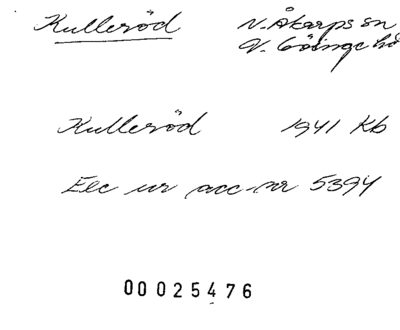 Kulleröd N. Åkarps sn
V. Göinge hd
Kulleröd 1941 Kb
Exc ur acc-nr 5394
00025476